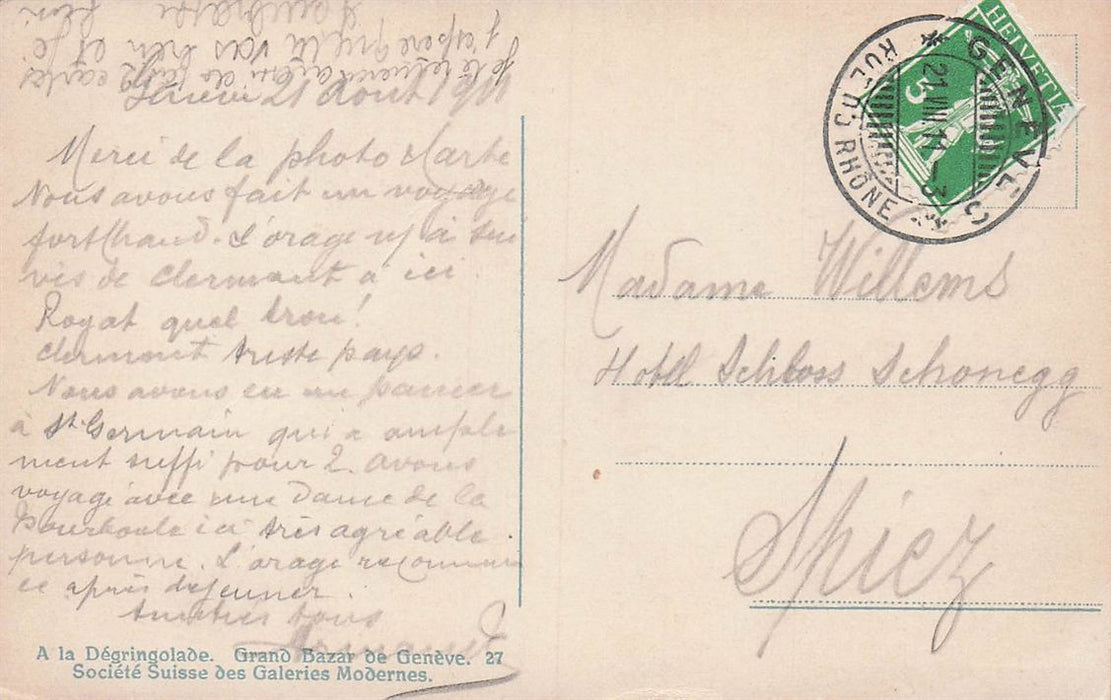 Genève 21 Août 1911
Merci de la photo carte
Nous avons fait un voyage
fort chaud. L'orage n/s a sui
vis de Clermont à ici.
Royat quel trou!
Clermont triste pays.
Nous avons eu un panier
à St Germain qui a ample
ment suffi pour 2. avons
voyagé avec une Dame de la
Bourboule ici très agréable
personne. L'orage recommen
ce après dejeuner.
Amitiés à tous
je te remercie de ta carte
J'espère que tu vas bien et je
Madame Willems
Hotel Schloss Schonegg
Spiez
HELVETIA
5
GENÈVE
21.VIII.11.-3
RUE DU RHÔNE
A la Dégringolade. Grand Bazar de Genève. 27
Société Suisse des Galeries Modernes.